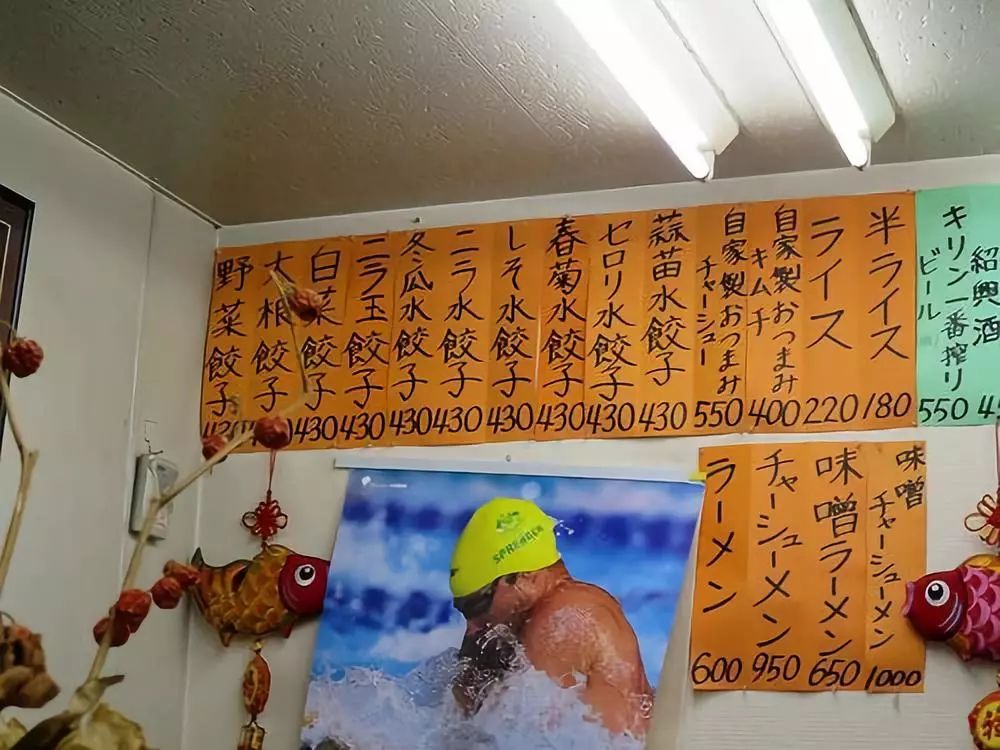 紹興酒
キリン一番搾り
ビール
550
半ライス
180
ライス
220
自家製おつまみ
キムチ
400
自家製おつまみ
チャーシュー
550
蒜苗水餃子
430
セロリ水餃子
430
春菊水餃子
430
しそ水餃子
430
ニラ水餃子
430
冬瓜水餃子
430
ニラ玉餃子
430
白菜餃子
430
大根餃子
野菜餃子
味噌
チャーシューメン
1000
味噌ラーメン
650
チャーシューメン
950
ラーメン
600